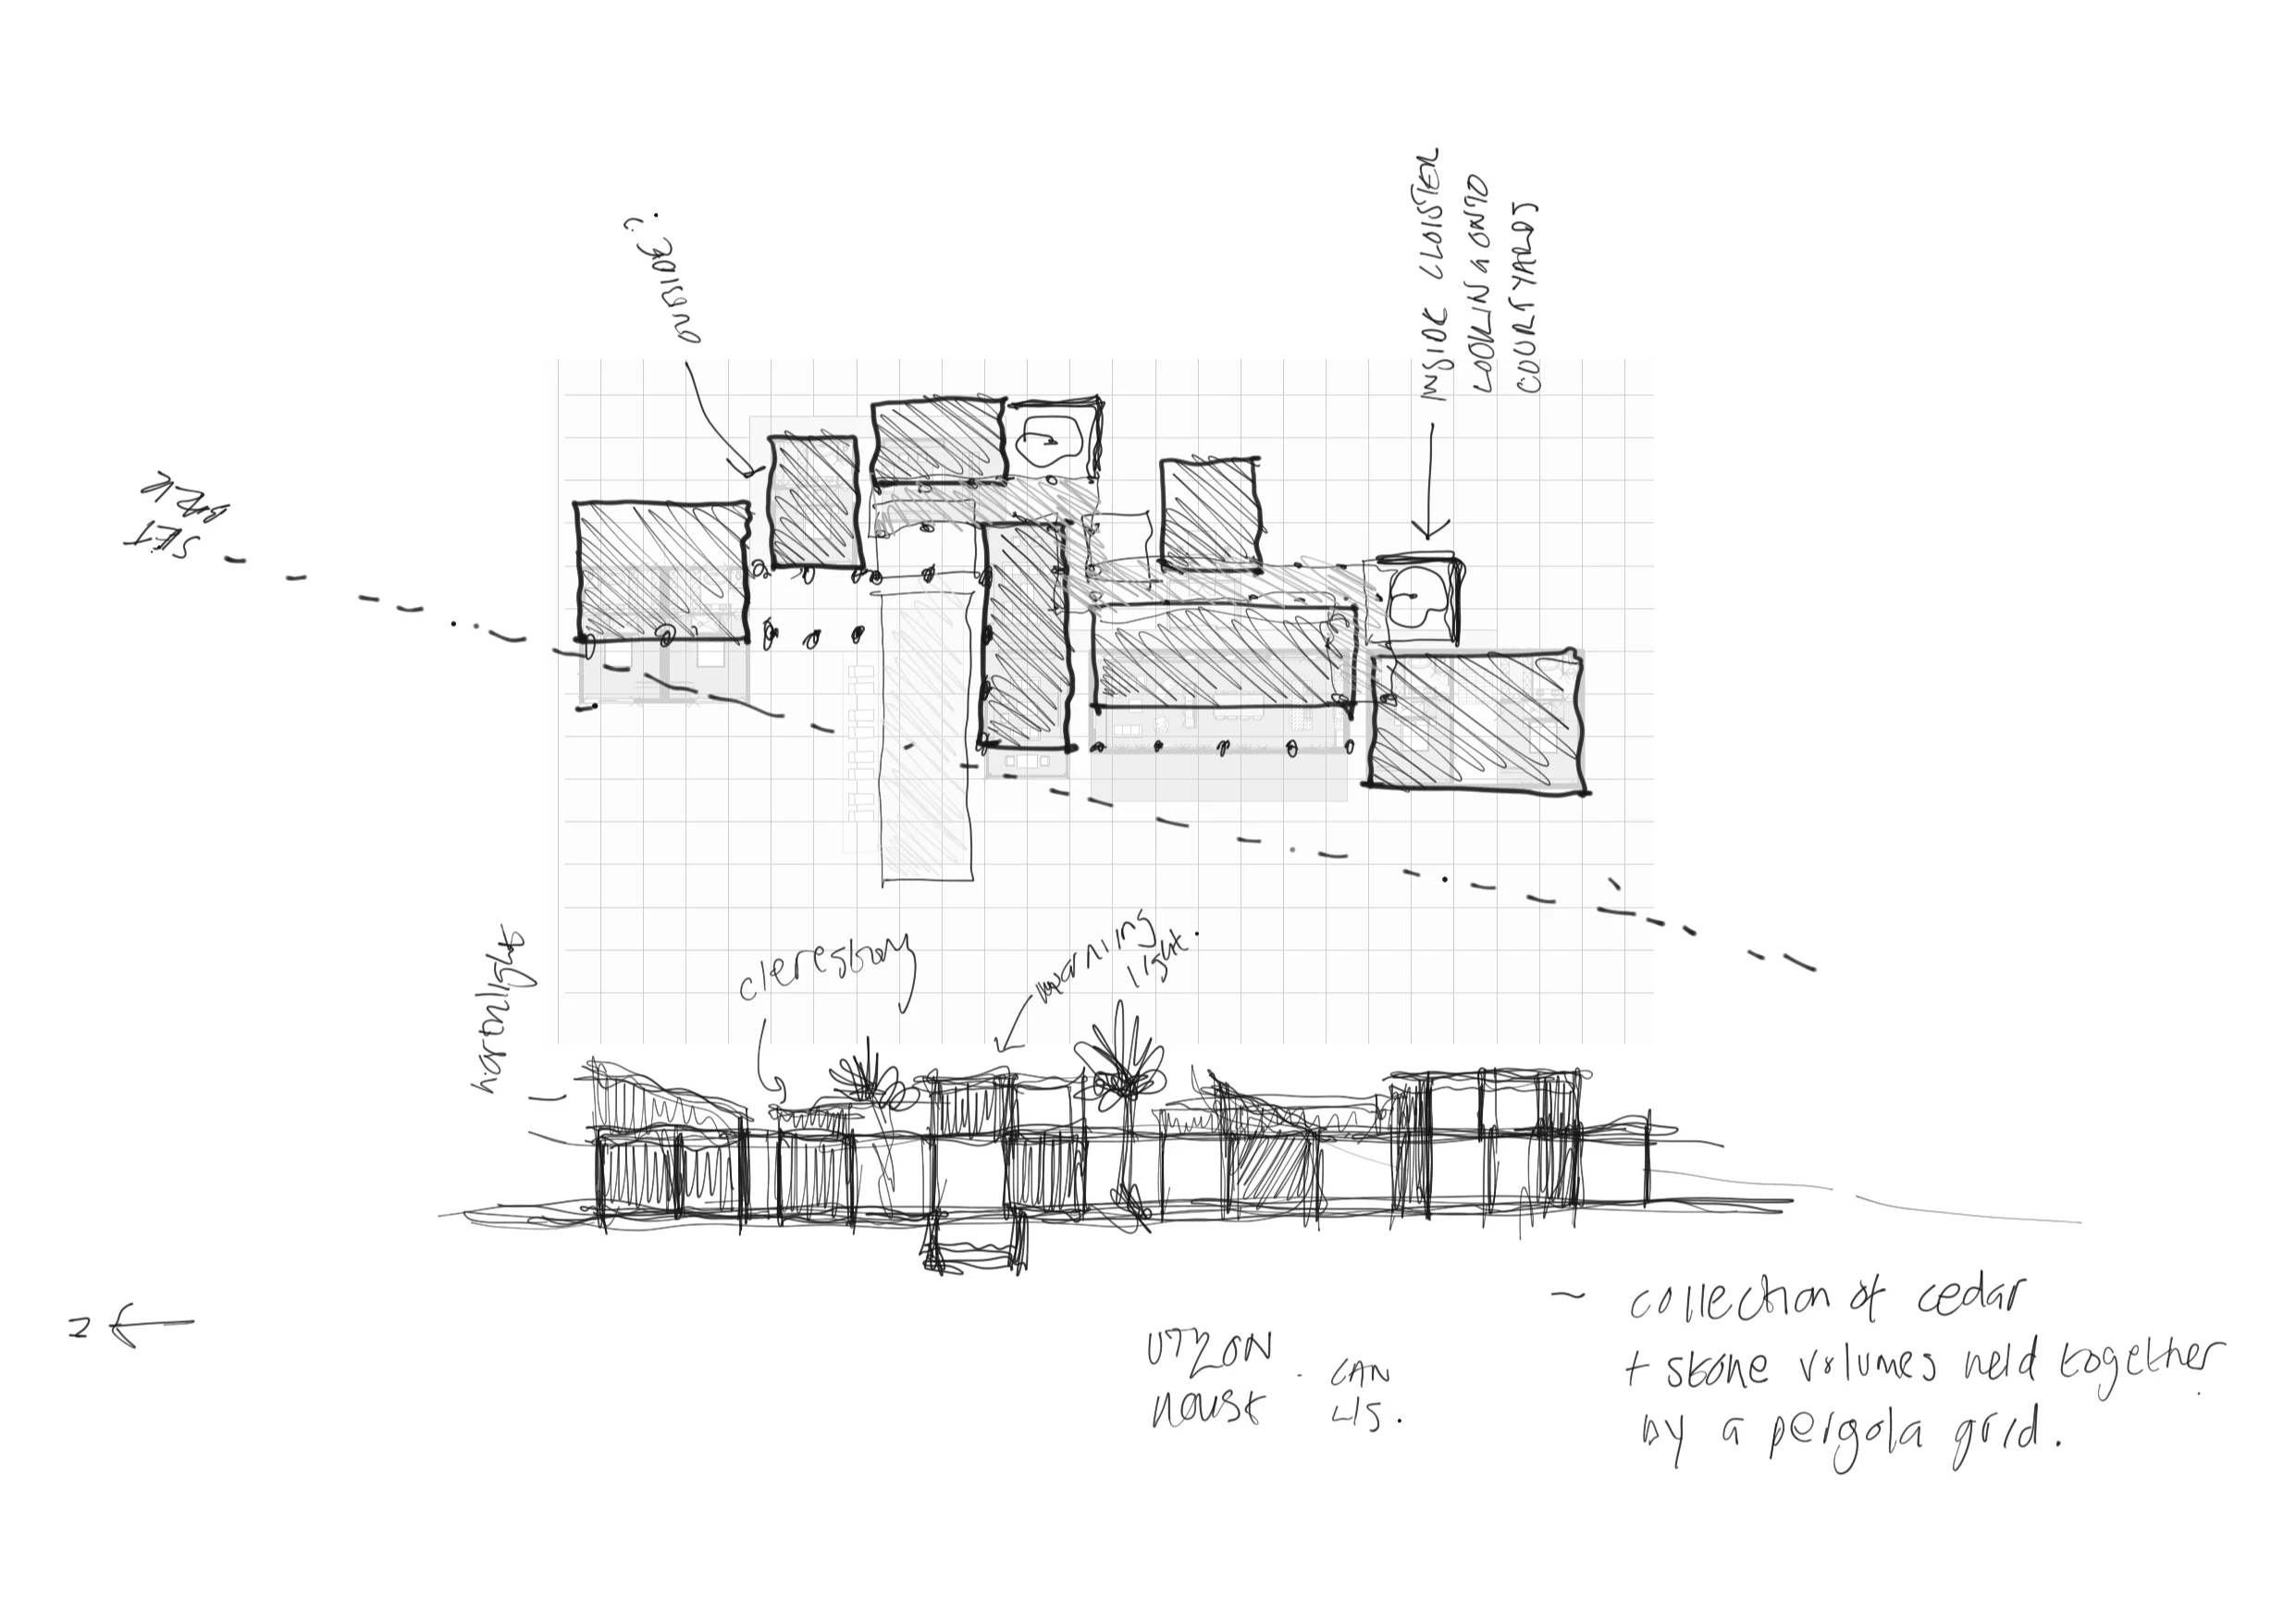 OUTSIDE?
INSIDE CLOISTER
LOOKING ONTO
COURTYARDS
SET
BACK
north light
clerestory
morning
light.
N
UTZON
HOUSE - CAN
LIS.
~ collection of cedar
+ stone volumes held together
by a pergola grid.